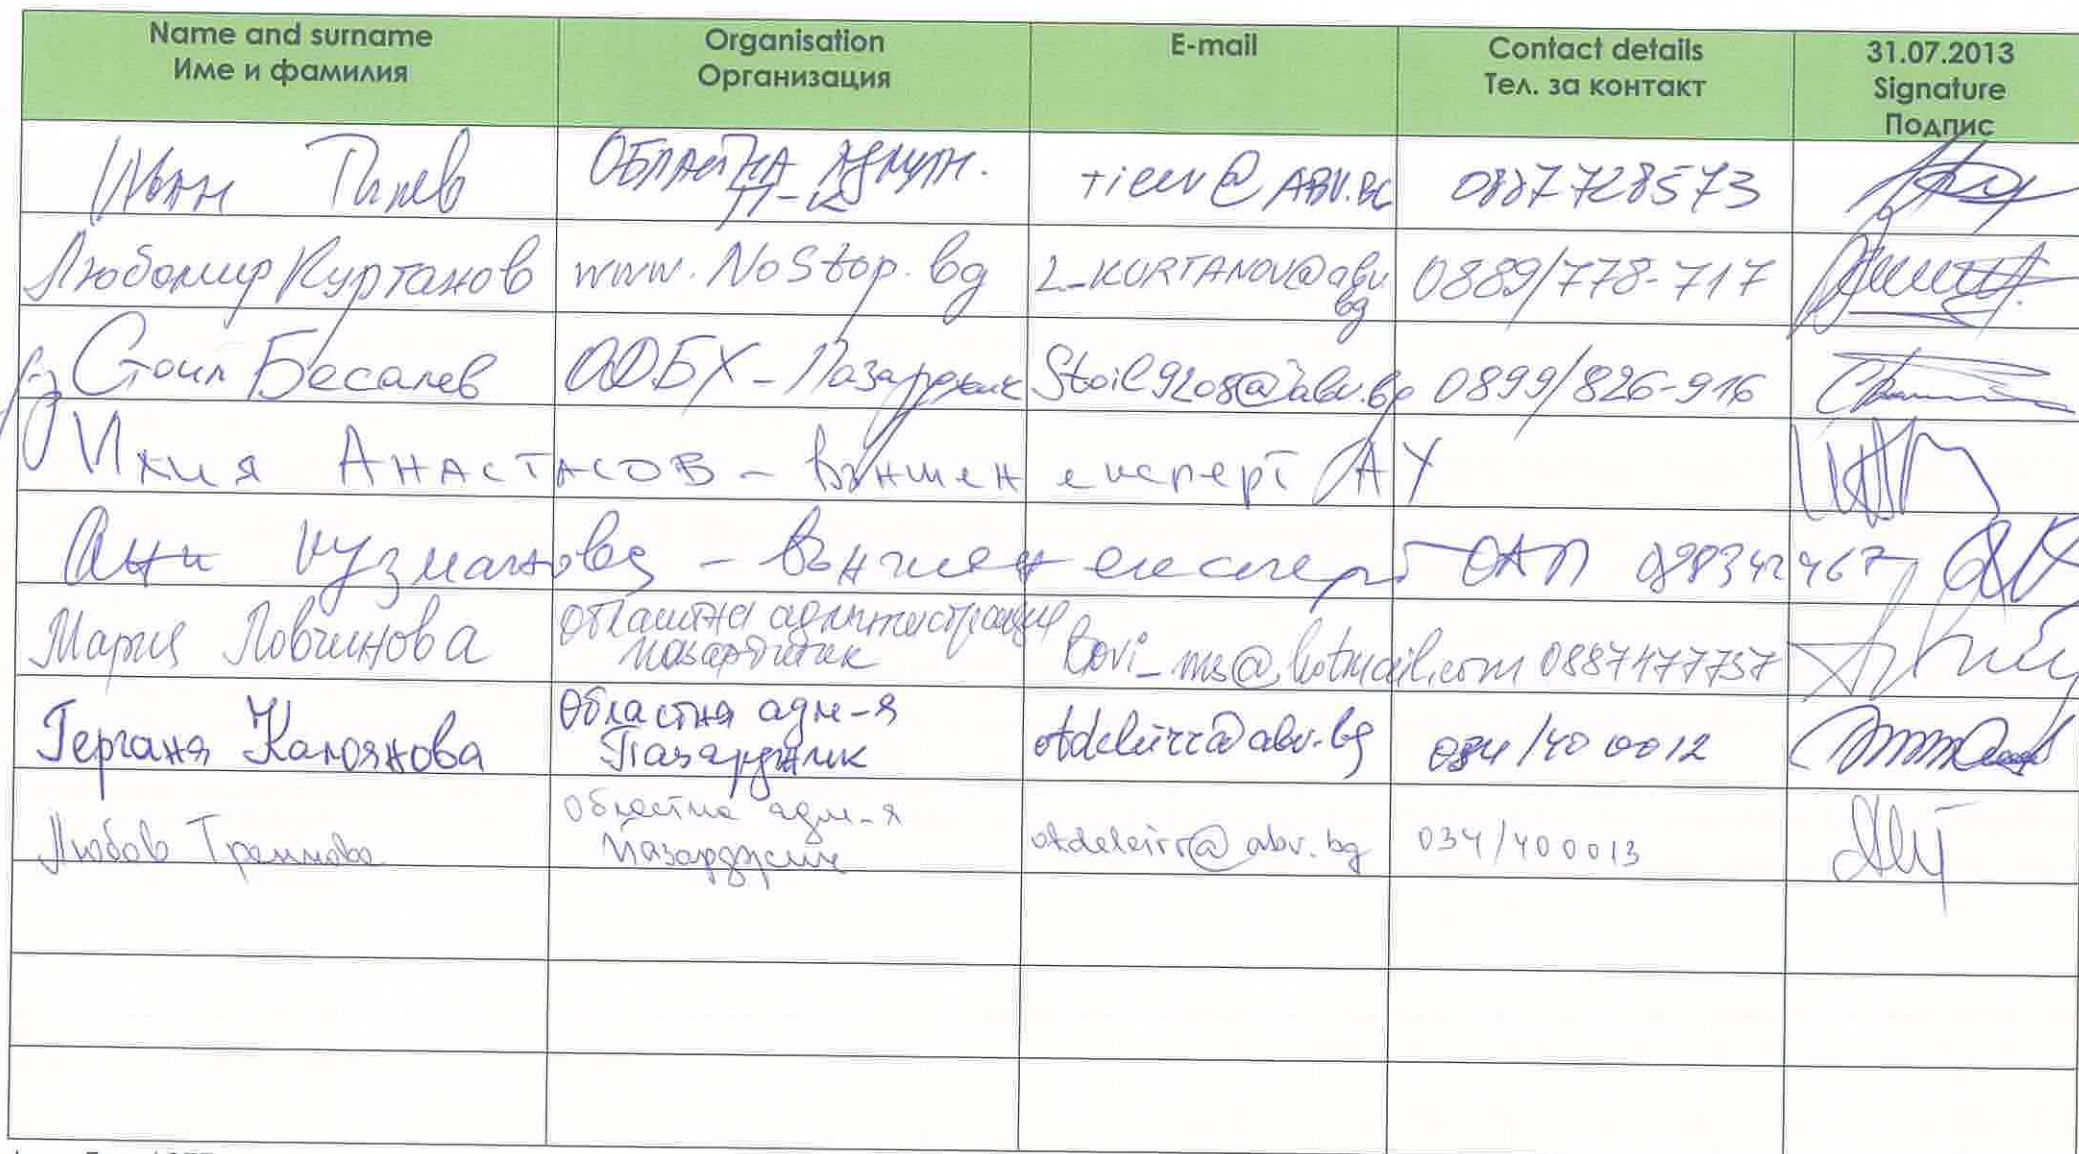 Name and surname
Име и фамилия
Organisation
Организация
E-mail
Contact details
Тел. за контакт
31.07.2013
Signature
Подпис
Иван ОБЛАСТНА АДМИН. П-К @ ABV.BG 0887728573
Любомир Куртанов www.NoStop.bg L_KURTANOV@abv.bg 0889/778-717
Стоил Бесалев ОДБХ - Пазарджик Stoil9208@abv.bg 0899/826-916
Илия Анастасов - външен експерт АУ
Ани Кузманова - външен експерт ОАП
Мария Ловчинова областна администрация Пазарджик lovi_ms@hotmail.com
Гергана Калоянова Областна адм-я Пазарджик otdeleirr@abv.bg 034/40 0012
Любов Областна адм-я Пазарджик otdeleirr@abv.bg 034/400013